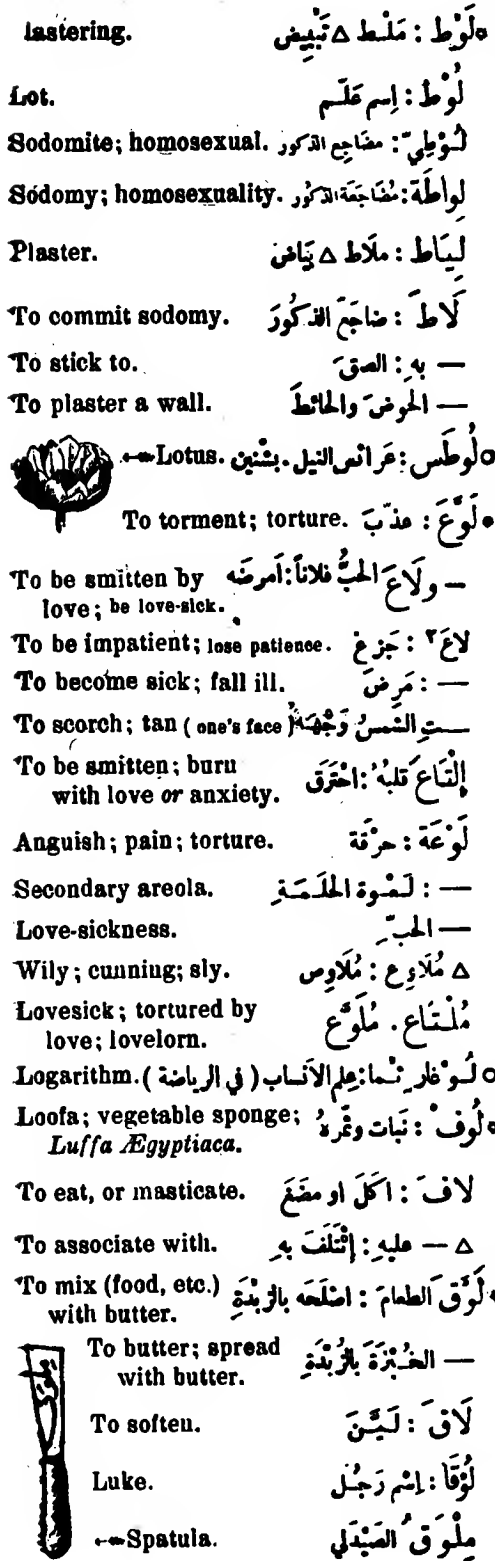 lastering. ‏لَوْط : مَلْط △ تَبْيِيض
Lot. ‏لُوْط : إسم عَلَـم
Sodomite; homosexual. ‏لُـوْطِيّ : مضاجع الذكور
Sodomy; homosexuality. ‏لِواطَة : مُضَاجَعَة الذكُور
Plaster. ‏لِيَاط : ملَاط △ بَيَاض
To commit sodomy. ‏لَاطَ : ضاجَعَ الذكُورَ
To stick to. ‏— بِهِ : الصقَ
To plaster a wall. ‏— الحوضَ والحائطَ
←Lotus. ‏○ لُوطَس : عَرائس النيل . بشْنين
To torment; torture. ‏لَوَّعَ : عذّبَ
To be smitten by ‏— ولَاعَ الحبُّ فلاناً : أمرضَه
love; be love-sick.
To be impatient; lose patience. ‏لاعَ ٢ : جَزِعَ
To become sick; fall ill. ‏— : مَرِضَ
To scorch; tan (one's face) ‏ـتِ الشمسُ وَجْهَهُ
To be smitten; burn ‏إلْتَاعَ قلبُهُ : احْتَرَقَ
with love or anxiety.
Anguish; pain; torture. ‏لَوْعَة : حرْقَة
Secondary areola. ‏— : لَـعْوة الحلَـمَـةِ
Love-sickness. ‏— الحبِّ
Wily; cunning; sly. ‏△ مُلَاوِع : مُلَاوِص
Lovesick; tortured by ‏مُلْـتَاع . مُلَوَّع
love; lovelorn.
Logarithm. ‏○ لُـوْغَارِتْـما : عِلم الأنساب ( في الرياضة )
Loofa; vegetable sponge; ‏لُوف : نَبات وثَمَرهُ
Luffa Ægyptiaca.
To eat, or masticate. ‏لافَ : اكَلَ او مضَغَ
To associate with. ‏△ — عليهِ : إئْتَلَفَ بهِ
To mix (food, etc.) ‏لَوَّقَ الطعامَ : اصْلَحَه بالزبْدَةِ
with butter.
To butter; spread ‏— الخُـبْزَةَ بالزُبْدَةِ
with butter.
To soften. ‏لَاقَ : لَـيَّـنَ
Luke. ‏لُوْقَا : إسْم رَجُـل
←Spatula. ‏مِلْوَق الصَيْدَلي